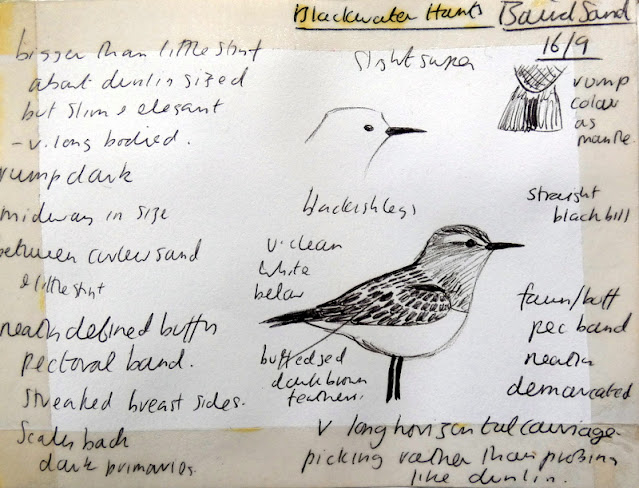 Blackwater Hants Baird Sand
16/9
bigger than little stint
about dunlin sized
but slim & elegant
- v. long bodied.
rump dark
midway in size
between curlew sand
& little stint
neatly defined buffy
pectoral band.
streaked breast sides.
Scaly back
dark primaries.
slight super
blackish legs
v. clean
white
below
buff edged
dark brown
feathers.
rump
colour
as
mantle.
straight
black bill
fawn/buff
pec band
neatly
demarcated
v long horizontal carriage
picking rather than probing
like dunlin.